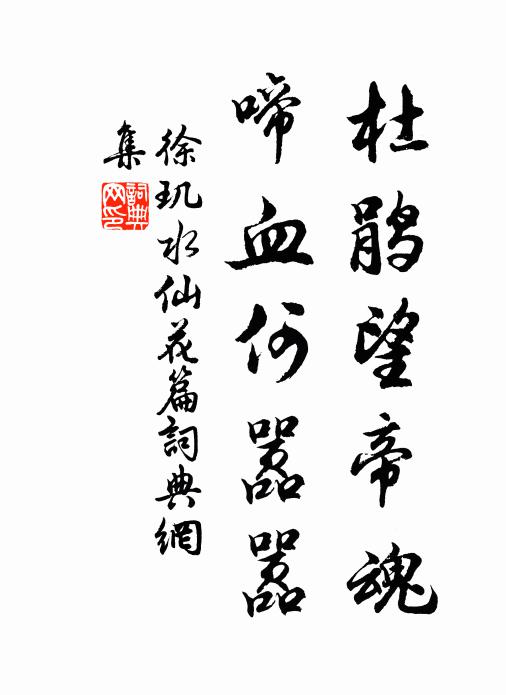 杜鹃望帝魂
啼血何嚣嚣
徐玑水仙花篇詞典網
集
詞典
网印